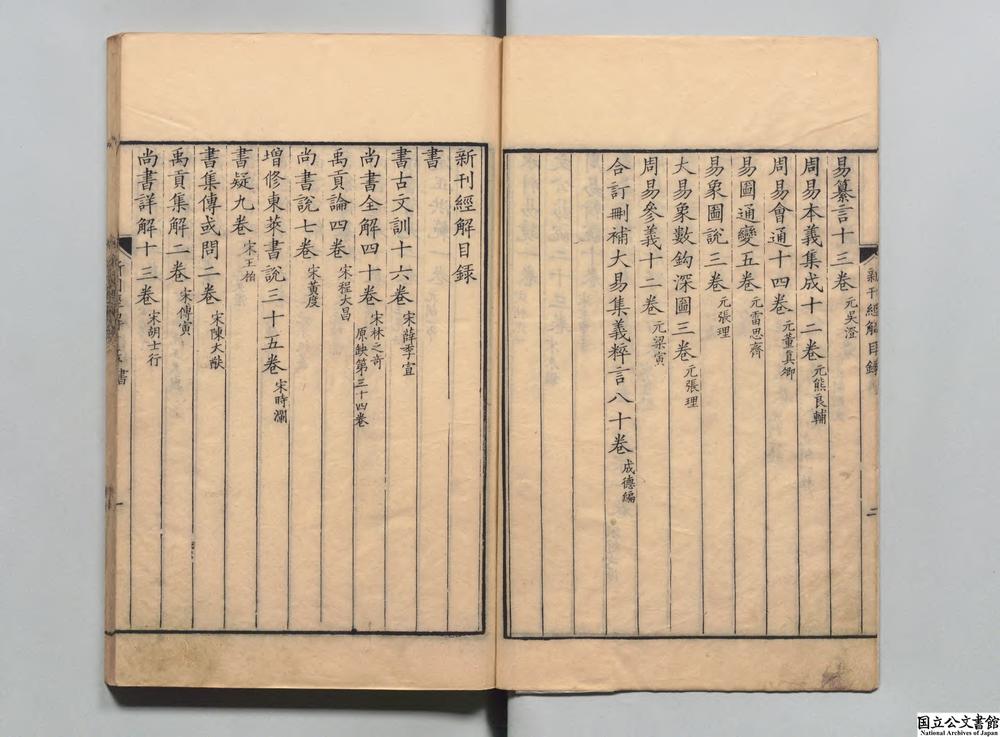 易纂言十三卷 元吳澄
周易本義集成十二卷 元熊良輔
周易會通十四卷 元董真卿
易圖通變五卷 元雷思齊
易象圖說三卷 元張理
大易象數鈎深圖三卷 元張理
周易參義十二卷 元梁寅
合訂刪補大易集義粹言八十卷 成德編
新刊經解目録
二
新刊經解目録
書
書古文訓十六卷 宋薛季宣
尚書全解四十卷 宋林之竒 原缺第三十四卷
禹貢論四卷 宋程大昌
尚書說七卷 宋黃度
增修東萊書說三十五卷 宋時瀾
書疑九卷 宋王柏
書集傳或問二卷 宋陳大猷
禹貢集解二卷 宋傅寅
尚書詳解十三卷 宋胡士行
書
一
国立公文書館
National Archives of Japan